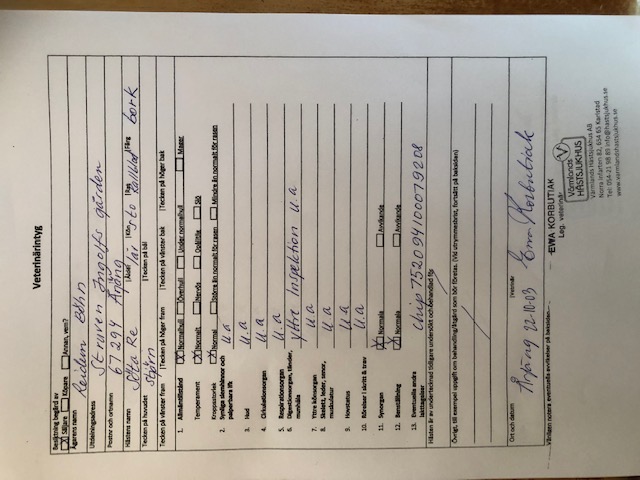 Veterinärintyg
Besiktning begärd av
Säljare Köpare Annan, vem?
Ägarens namn
Reidem Elin
Utdelningsadress
Struven Ingolfs gården
Postnr och ortnamn
67294 Årjäng
Hästens namn Ålder Kön Ras Färg
Sita Re 1 år sto kallblod bork
Tecken på huvudet Tecken på bål
stjärn
Tecken på vänster fram Tecken på höger fram Tecken på vänster bak Tecken på höger bak
1. Allmäntillstånd Normalhull Överhull Under normalhull Mager
Temperament Normalt Nervös Opålitlig Slö
Kroppsstorlek Normal Större än normalt för rasen Mindre än normalt för rasen
2. Synliga slemhinnor och palperbara lfk u.a
3. Hud u.a
4. Cirkulationsorgan u.a
5. Respirationsorgan u.a
6. Digestionsorgan, tänder, munhåla yttre Inspektion u.a
7. Yttre könsorgan u.a
8. Skelett, leder, senor, muskulatur u.a
9. Hovstatus u.a
10. Rörelser i skritt & trav u.a
11. Synorgan Normala Avvikande
12. Benställning Normala Avvikande
13. Eventuella andra iakttagelser chip 752094100079208
Hästen är av undertecknad tidigare undersökt och behandlad för
Övrigt, till exempel uppgift om behandling/åtgärd som bör företas. (Vid utrymmesbrist, fortsätt på baksidan)
Ort och datum Veterinär
Årjäng 22-10-03 Ewa Korbutiak
Vänligen notera eventuella avvikelser på baksidan.
EWA KORBUTIAK
Leg. veterinär
Värmlands
HÄSTSJUKHUS
Värmlands Hästsjukhus AB
Norra Infarten 82, 654 65 Karlstad
Tel: 054-21 98 89 info@hastsjukhus.se
www.varmlandshastsjukhus.se